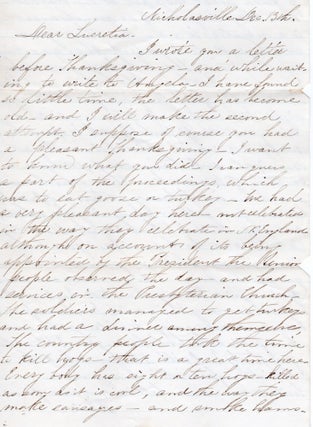 Nicholasville Dec 13th.
Dear Lucretia.
I wrote you a letter
before Thanksgiving - and while wait-
ing to write to Angela - I have found
so little time, the letter has become
old - and I will make the second
attempt. I suppose of course you had
a pleasant Thanksgiving - I want
to know what you did. I can guess
a part of the proceedings, which
was to eat goose or turkey - We had
a very pleasant day here - not celebrated
in the way they celebrate in N. England
although on account of its being
appointed by the President the Union
people observed the day - and had
services in the Presbyterian Church -
the soldiers managed to get turkeys
and had a dinner among themselves.
The country people took the time
to kill hogs - that is a great time here
Every body has eight or ten hogs - killed
as soon as it is cool, and the way they
make sausages - and smoke hams -